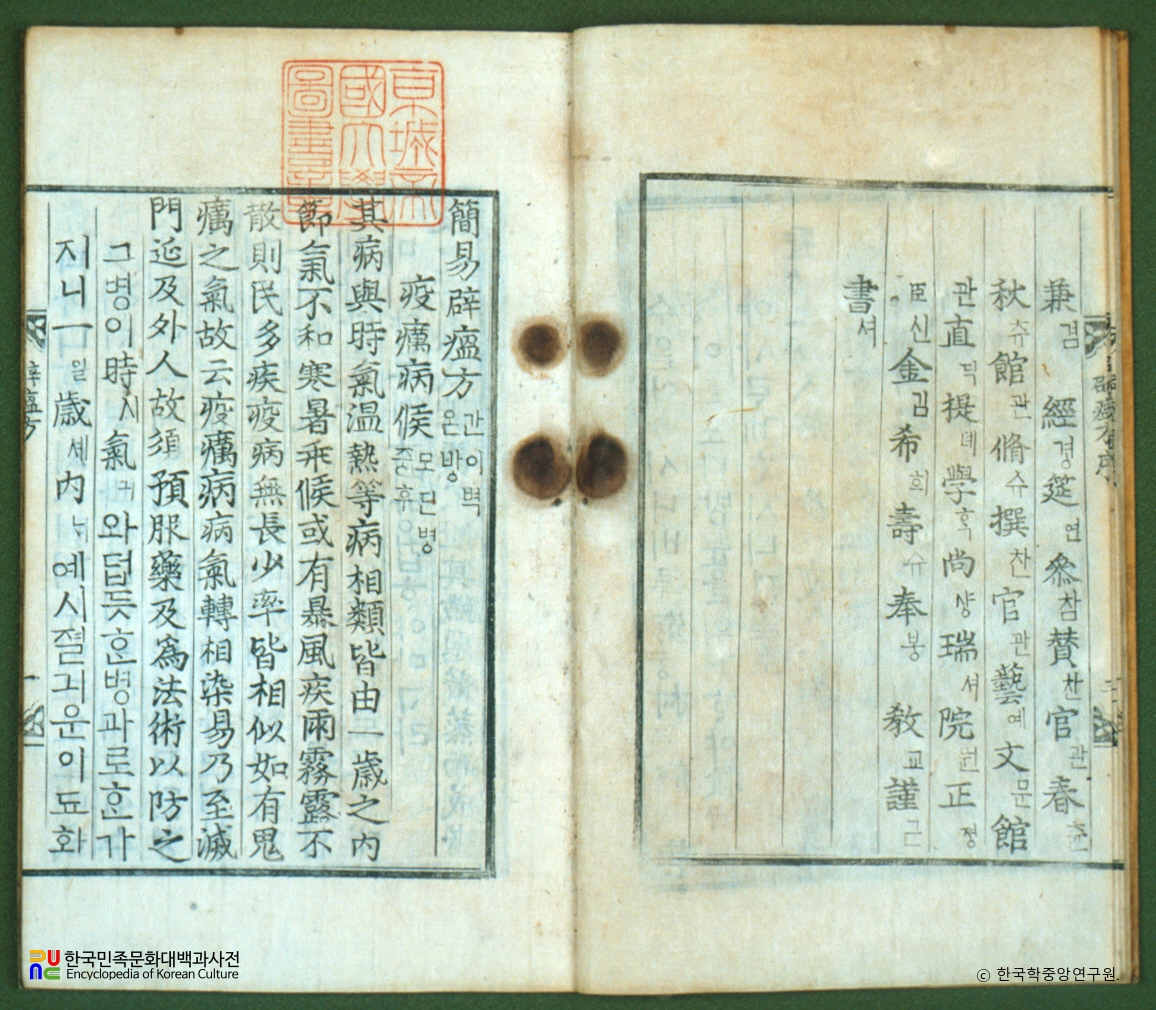 兼겸經경筵연參참贊찬官관春츈
秋츄館관脩슈撰찬官관藝예文문館관
直딕提뎨學학尚샹瑞셔院원正졍
臣신金김希희壽슈奉봉敎교謹근
書셔
京城帝
國大學
圖書章
簡易辟瘟方간이벽온방
疫癘病候모딘병증휴
其病與時氣溫熱等病相類皆由一歲之內
節氣不和寒暑乖候或有暴風疾雨霧露不
散則民多疾疫病無長少率皆相似如有鬼
癘之氣故云疫癘病病氣轉相染易乃至滅
門延及外人故須預服藥及爲法術以防之
그병이時시氣긔와덥듯ᄒᆞᆫ병과로ᄒᆞᆫ가
지니一일歲셰內ᄂᆡ예시졀긔운이됴화
한국민족문화대백과사전
Encyclopedia of Korean Culture
ⓒ 한국학중앙연구원